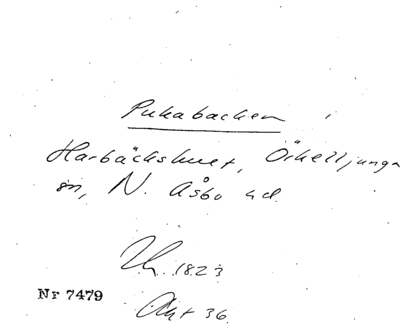 Pukabacken i
Harbäckshult, Örkelljunga
sn, N. Åsbo hd.
Lh. 1823
Nr 7479
Akt 36